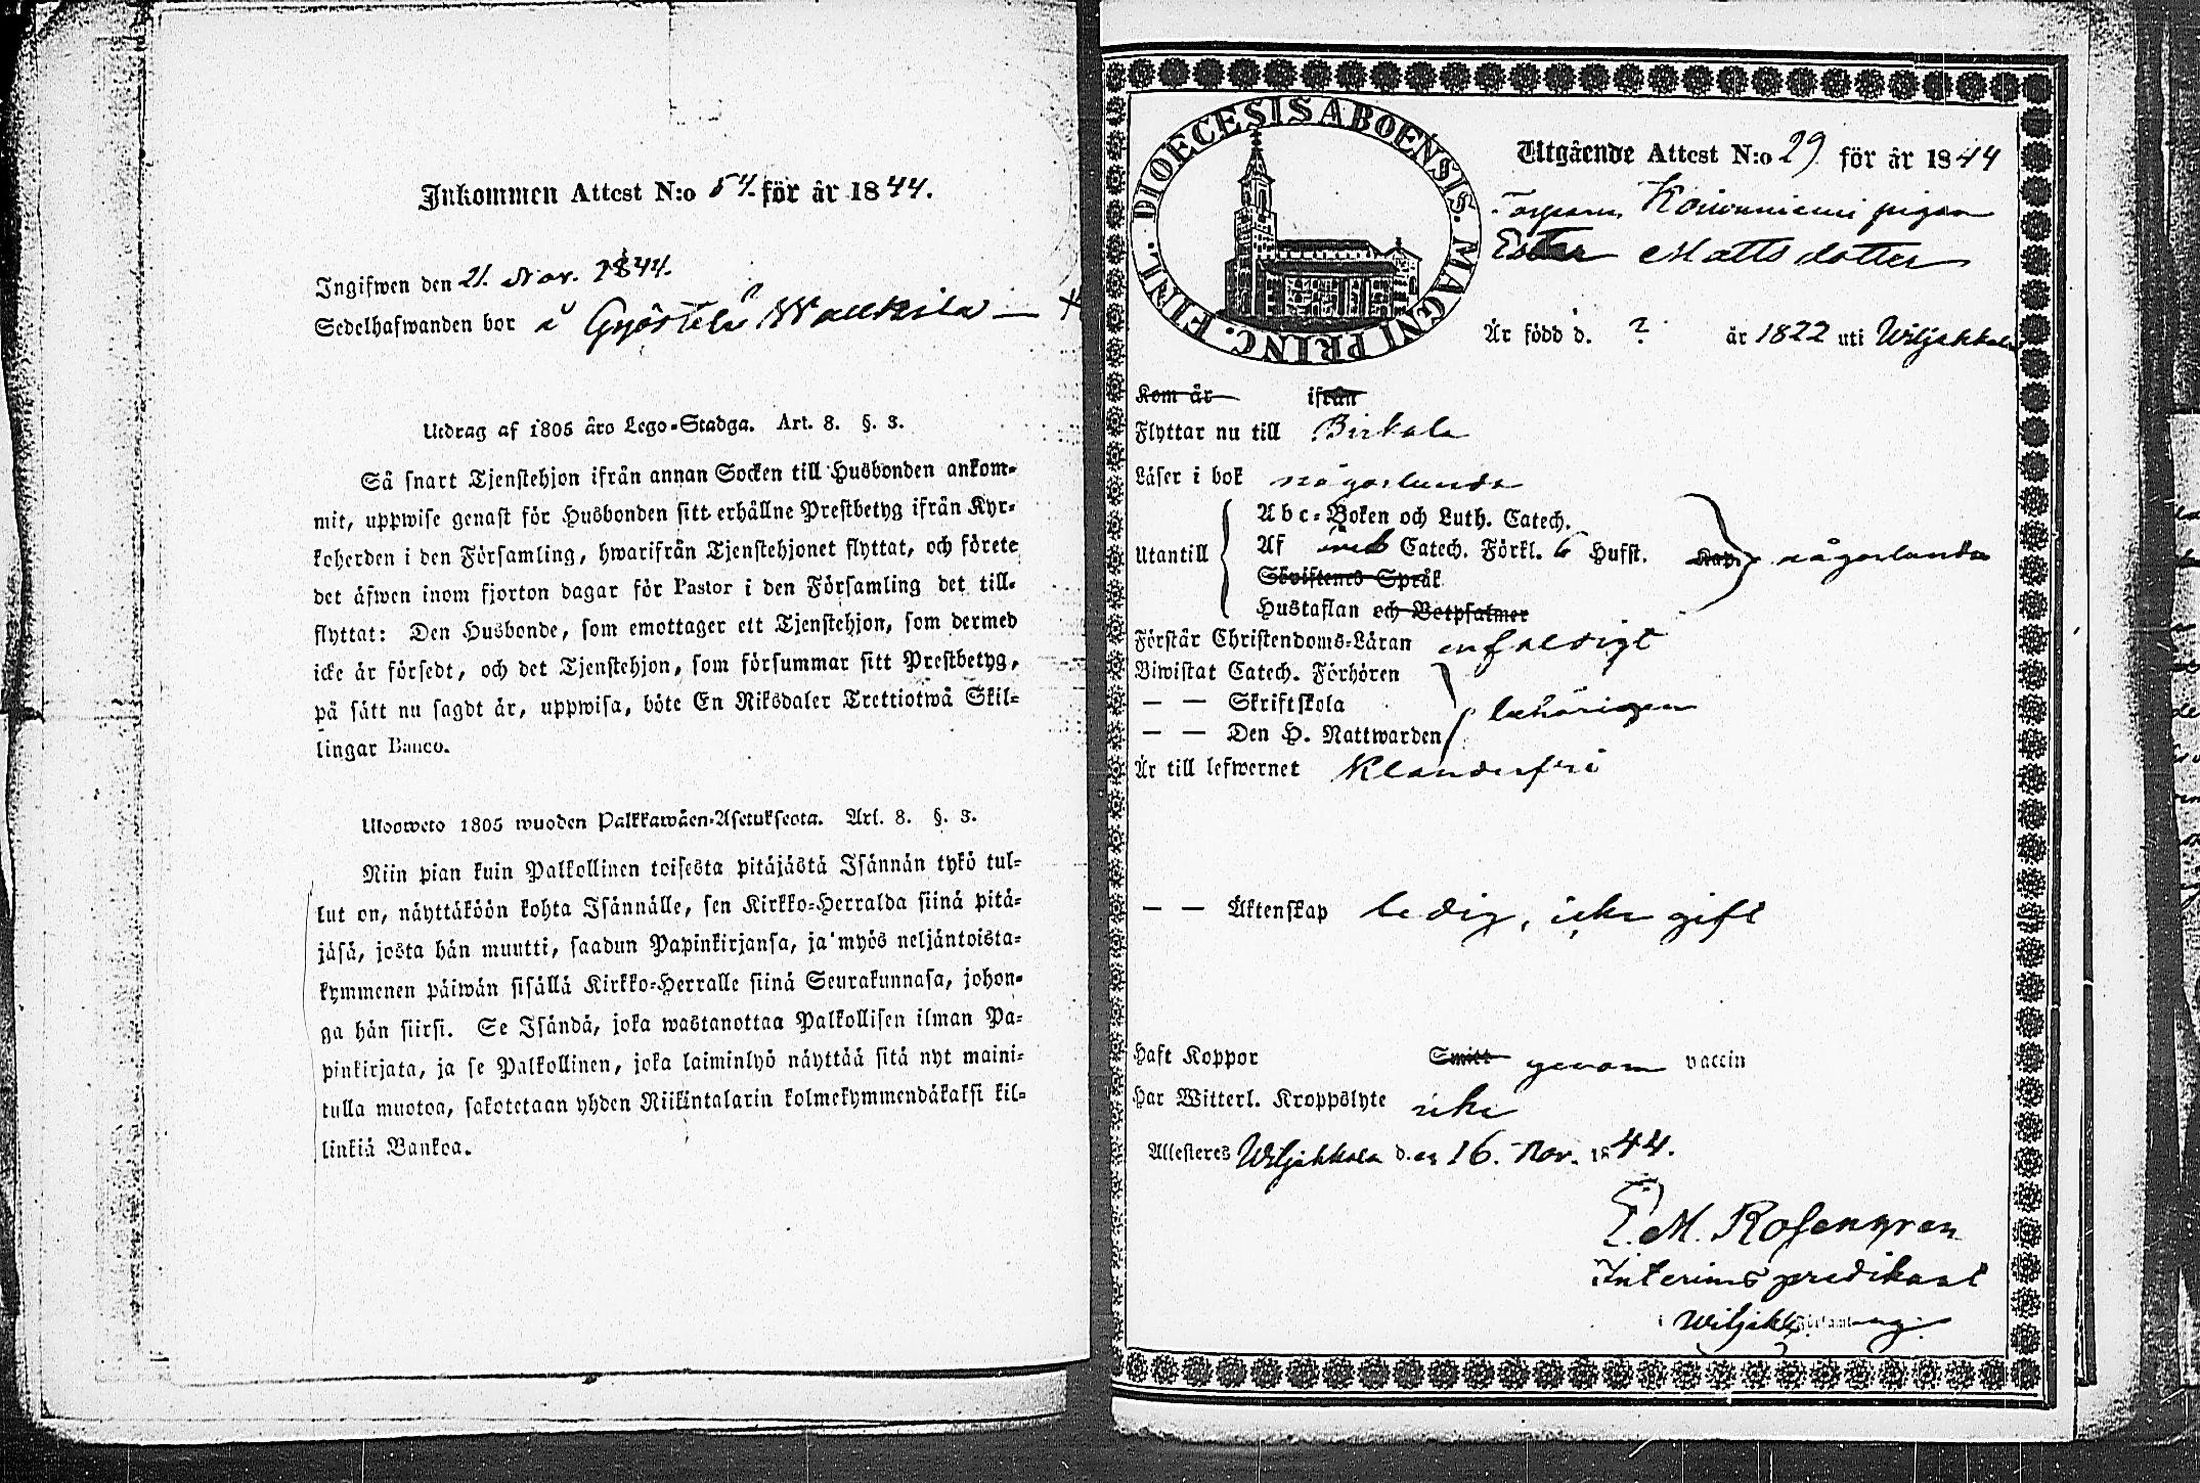 Inkommen Attest N:o 54. för år 1844.
Ingifwen den 21. Nov. 1844.
Sedelhafwanden bor i
Utdrag af 1805 års Lego-Stadga. Art. 8. §. 3.
Så snart Tjenstehjon ifrån annan Socken till Husbonden ankom-
mit, uppwise genast för Husbonden sitt erhållne Prestbetyg ifrån Kyr-
koherden i den Församling, hwarifrån Tjenstehjonet flyttat, och förete
det äfwen inom fjorton dagar för Pastor i den Församling det till-
flyttat: Den Husbonde, som emottager ett Tjenstehjon, som dermed
icke är försedt, och det Tjenstehjon, som försummar sitt Prestbetyg,
på sätt nu sagdt är, uppwisa, böte En Riksdaler Trettiotwå Skil-
lingar Banco.
Ulosweto 1805 wuoden Palkkawäen-Asetuksesta. Art. 8. §. 3.
Niin pian kuin Palkollinen toisesta pitäjästä Isännän tykö tul-
lut on, näyttäköön kohta Isännälle, sen Kirkko-Herralda siinä pitä-
jäsä, josta hän muutti, saadun Papinkirjansa, ja myös neljäntoista-
kymmenen päiwän sisällä Kirkko-Herralle siinä Seurakunnasa, johon-
ga hän siirsi. Se Isändä, joka wastanottaa Palkollisen ilman Pa-
pinkirjata, ja se Palkollinen, joka laiminlyö näyttää sitä nyt maini-
tulla muotoa, sakotetaan yhden Riikintalarin kolmekymmendäkaksi kil-
linkiä Bankoa.
DIOECESIS ABOENSIS. MAGNI PRINC. FINL.
Utgående Attest N:o 29 för år 1844
Koivuniemi pigan
Ester Mattsdotter
Är född d. ? år 1822 uti Wiljakkala
Kom år ifrån
Flyttar nu till Birkala
Läser i bok någorlunda
Abc-Boken och Luth. Catech.
Utantill Af Catech. Förkl. 6 Hufst. Kap. någorlunda
Sövistenes Språk
Hustaflan och Botpsalmer
Förstår Christendoms-Läran enfaldigt
Biwistat Catech. Förhören
— — Skriftskola behörigen
— — Den H. Nattwarden
Är till lefwernet Klanderfri
— — Äktenskap ledig, icke gift
Haft Koppor Smitt genom vaccin
Har Witterl. Kroppslyte icke
Attesteras Wiljakkala d. 16. Nov. 1844.
E. M. Rosengren
Interims predikant
i Wiljakk. Församling.